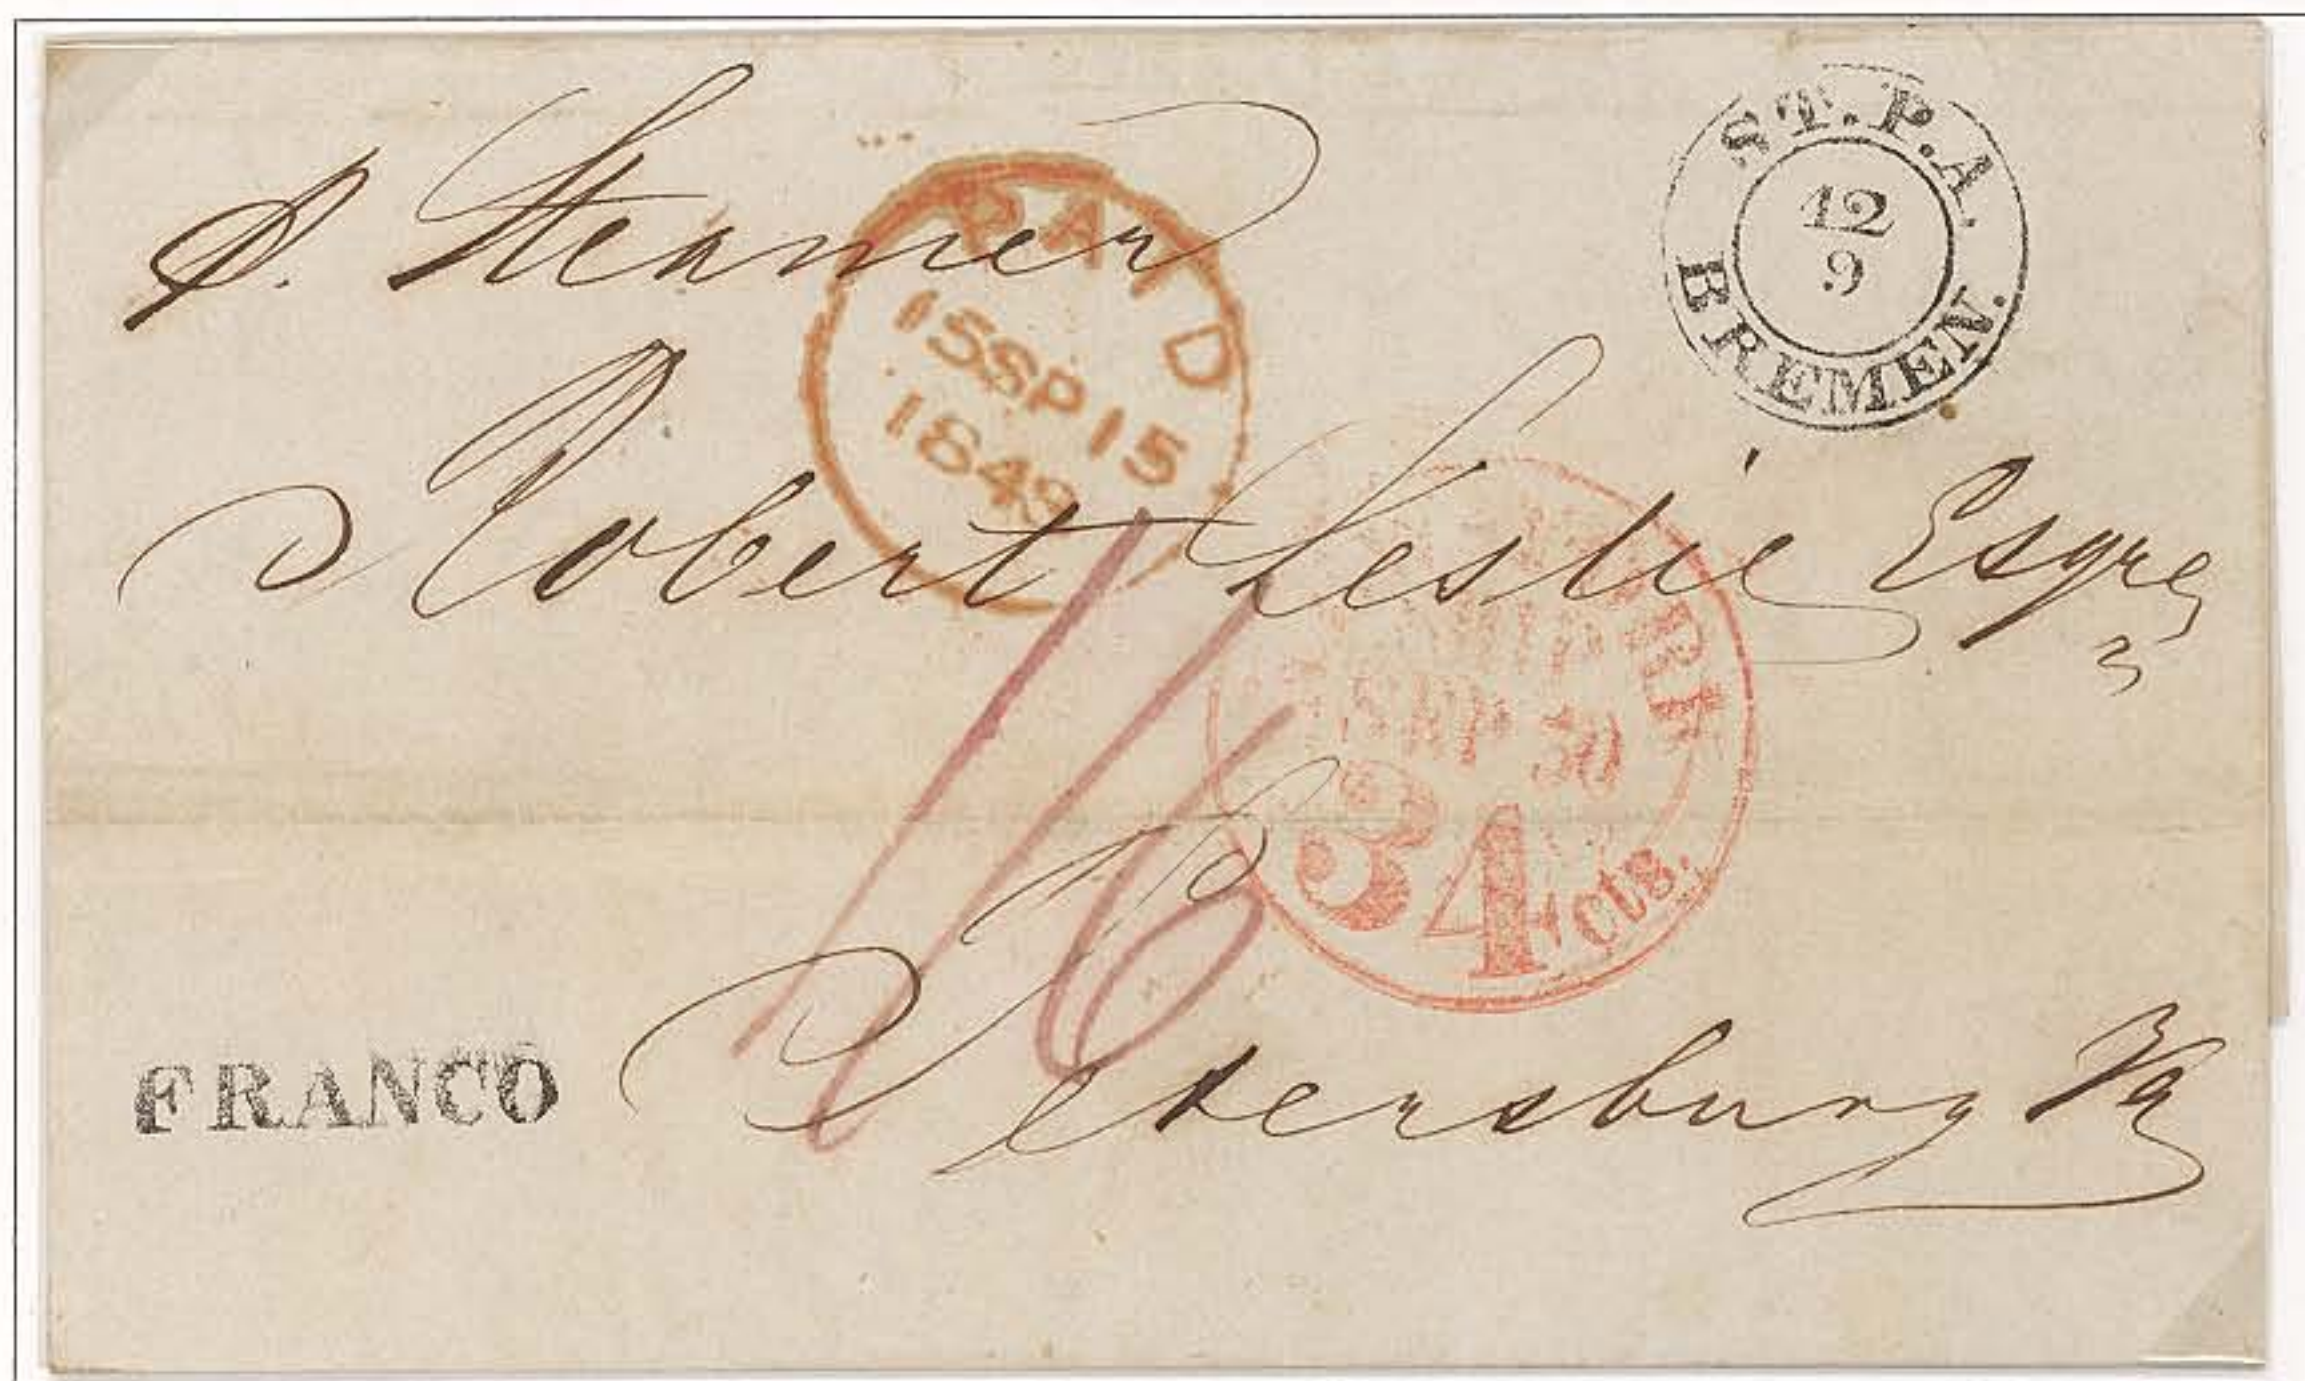 p. Steamer
ST. P. A.
12
9
BREMEN.
PAID
15SP15
1849
Robert Leslie Esqre
SEP 30
34 cts.
1/6
FRANCO
Petersburg Va